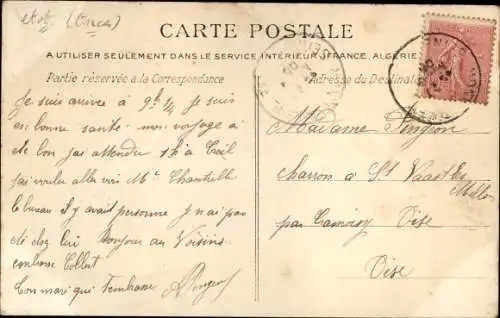 CARTE POSTALE
A UTILISER SEULEMENT DANS LE SERVICE INTÉRIEUR (FRANCE, ALGÉRIE
Partie réservée à la Correspondance
Adresse du Destinat
Je suis arrivée à 9h 1/4 je suis
en bonne santé mon voyage a
été bon j'ai attendre 1h à Creil
j'ai voulu aller voir Mr
le bureau il y avait personne je n'ai pas
été chez lui Bonjour au Voisins
Ton mari qui t'embrasse
Madame
charron à St Vaast les Mello
par Cramoisy Oise
Oise